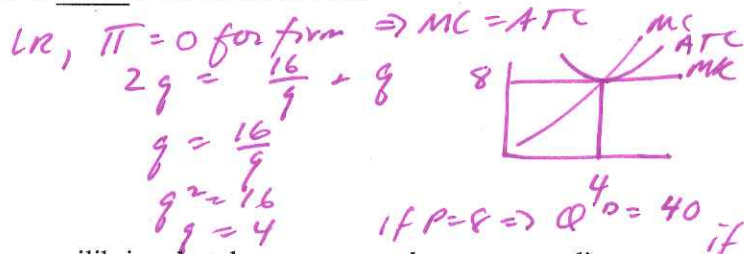 LR, Π = 0 for firm ⇒ MC = ATC
2q = 16/q + q
q = 16/q
q² = 16
q = 4
MC
ATC
MR
8
4
if P=8 ⇒ Q^D = 40 if